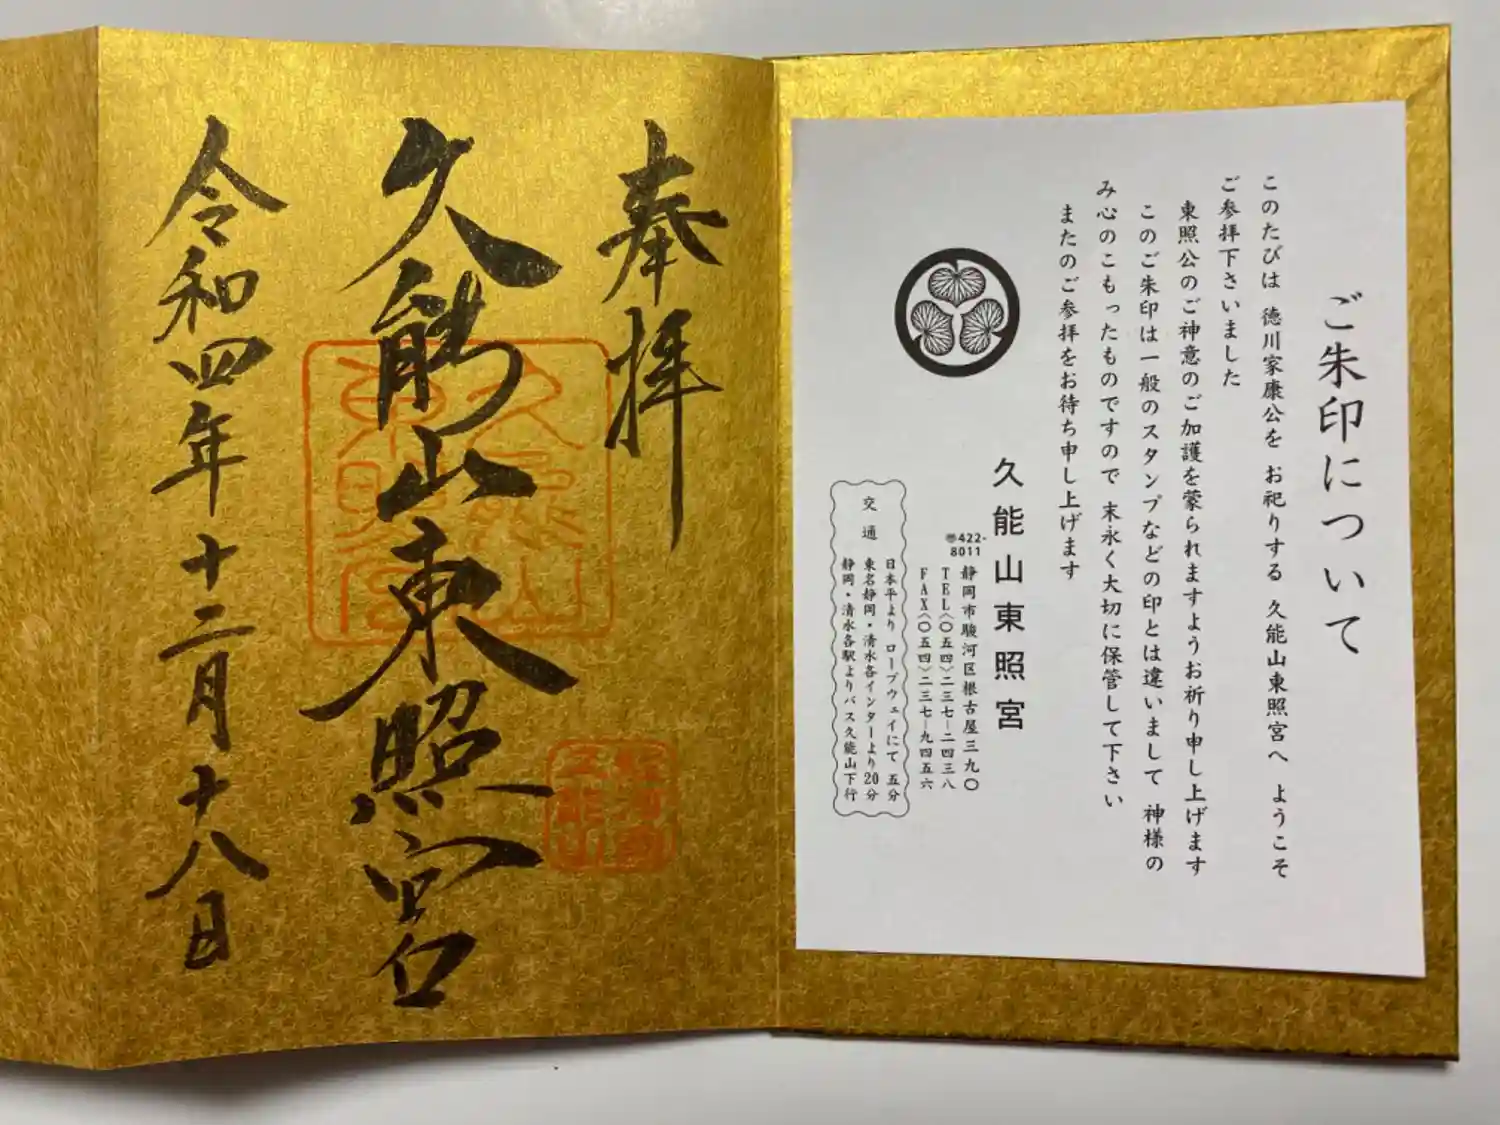 ご朱印について
このたびは 徳川家康公を お祀りする 久能山東照宮へ ようこそ
ご参拝下さいました
東照公のご神意のご加護を蒙られますようお祈り申し上げます
このご朱印は一般のスタンプなどの印とは違いまして 神様の
み心のこもったものですので 末永く大切に保管して下さい
またのご参拝をお待ち申し上げます
久能山東照宮
〠422-8011 静岡市駿河区根古屋三九〇
TEL(〇五四)二三七-二四三八
FAX(〇五四)二三七-九四五六
交通
日本平より ロープウェイにて 五分
東名静岡・清水各インターより20分
静岡・清水各駅よりバス久能山下行
奉拝
久能山東照宮
久能山
東照宮
令和四年十二月十八日